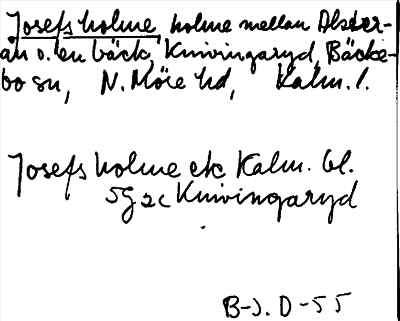 Josefs holme, holme mellan Alster-
ån o. en bäck, Knivingaryd, Bäcke-
bo sn, N. Möre hd, Kalm. l.
Josefs holme ek Kalm. bl.
5G 2c Knivingaryd
B-J. D-55